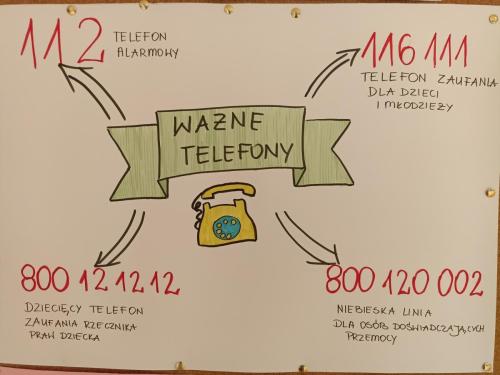 112
TELEFON
ALARMOWY
116 111
TELEFON ZAUFANIA
DLA DZIECI
I MŁODZIEŻY
WAŻNE
TELEFONY
800 12 12 12
DZIECIĘCY TELEFON
ZAUFANIA RZECZNIKA
PRAW DZIECKA
800 120 002
NIEBIESKA LINIA
DLA OSÓB DOŚWIADCZAJĄCYCH
PRZEMOCY